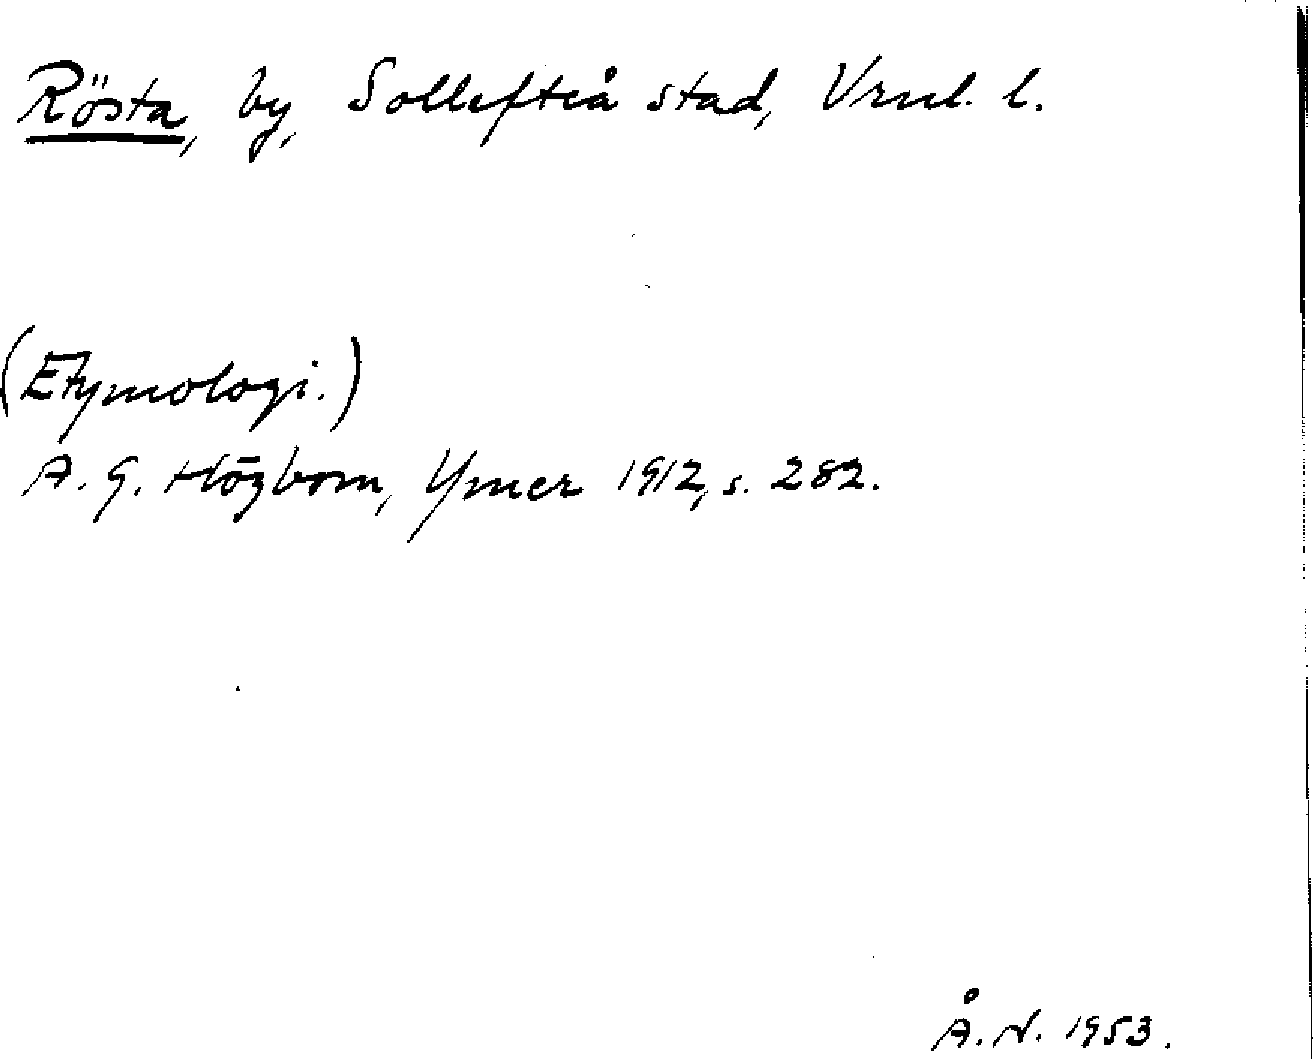 Rösta, by, Sollefteå stad, Vrnl. l.
(Etymologi.)
A. G. Högbom, Ymer 1912, s. 282.
Å. N. 1953.